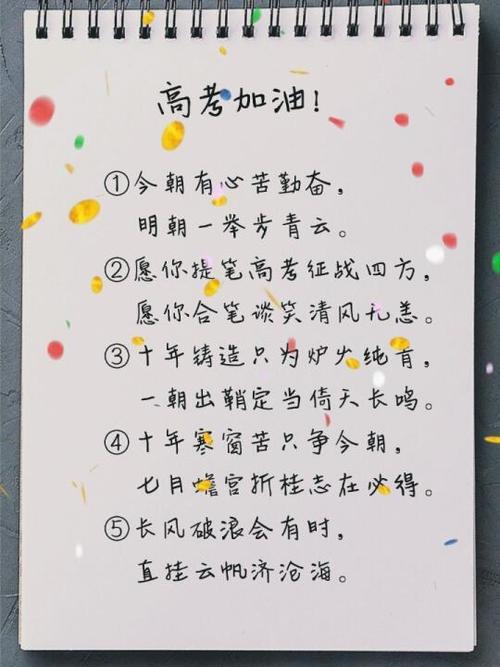 高考加油！
①今朝有心苦勤奋，
明朝一举步青云。
②愿你提笔高考征战四方，
愿你合笔谈笑清风无恙。
③十年铸造只为炉火纯青，
一朝出鞘定当倚天长鸣。
④十年寒窗苦只争今朝，
七月蟾宫折桂志在必得。
⑤长风破浪会有时，
直挂云帆济沧海。